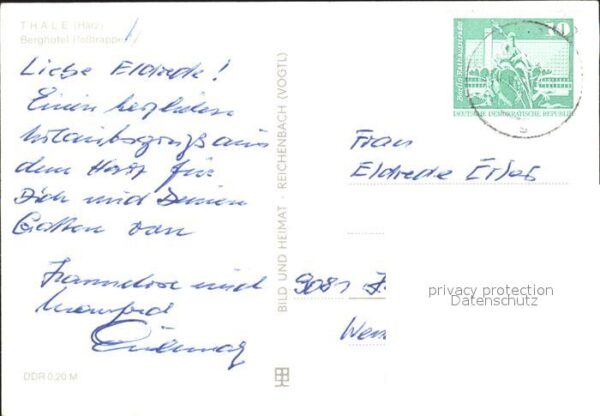 THALE (Harz)
Berghotel Roßtrappe
Liebe Eldrede!
Einen herzlichen
Urlaubsgruß aus
dem Harz für
Dich und Deinen
Gatten von
Hannelore und
Manfred
DDR 0,20 M
BILD UND HEIMAT · REICHENBACH (VOGTL)
10
Berlin, Rathausstraße
DEUTSCHE DEMOKRATISCHE REPUBLIK
Frau
Eldrede
9081
privacy protection
Datenschutz